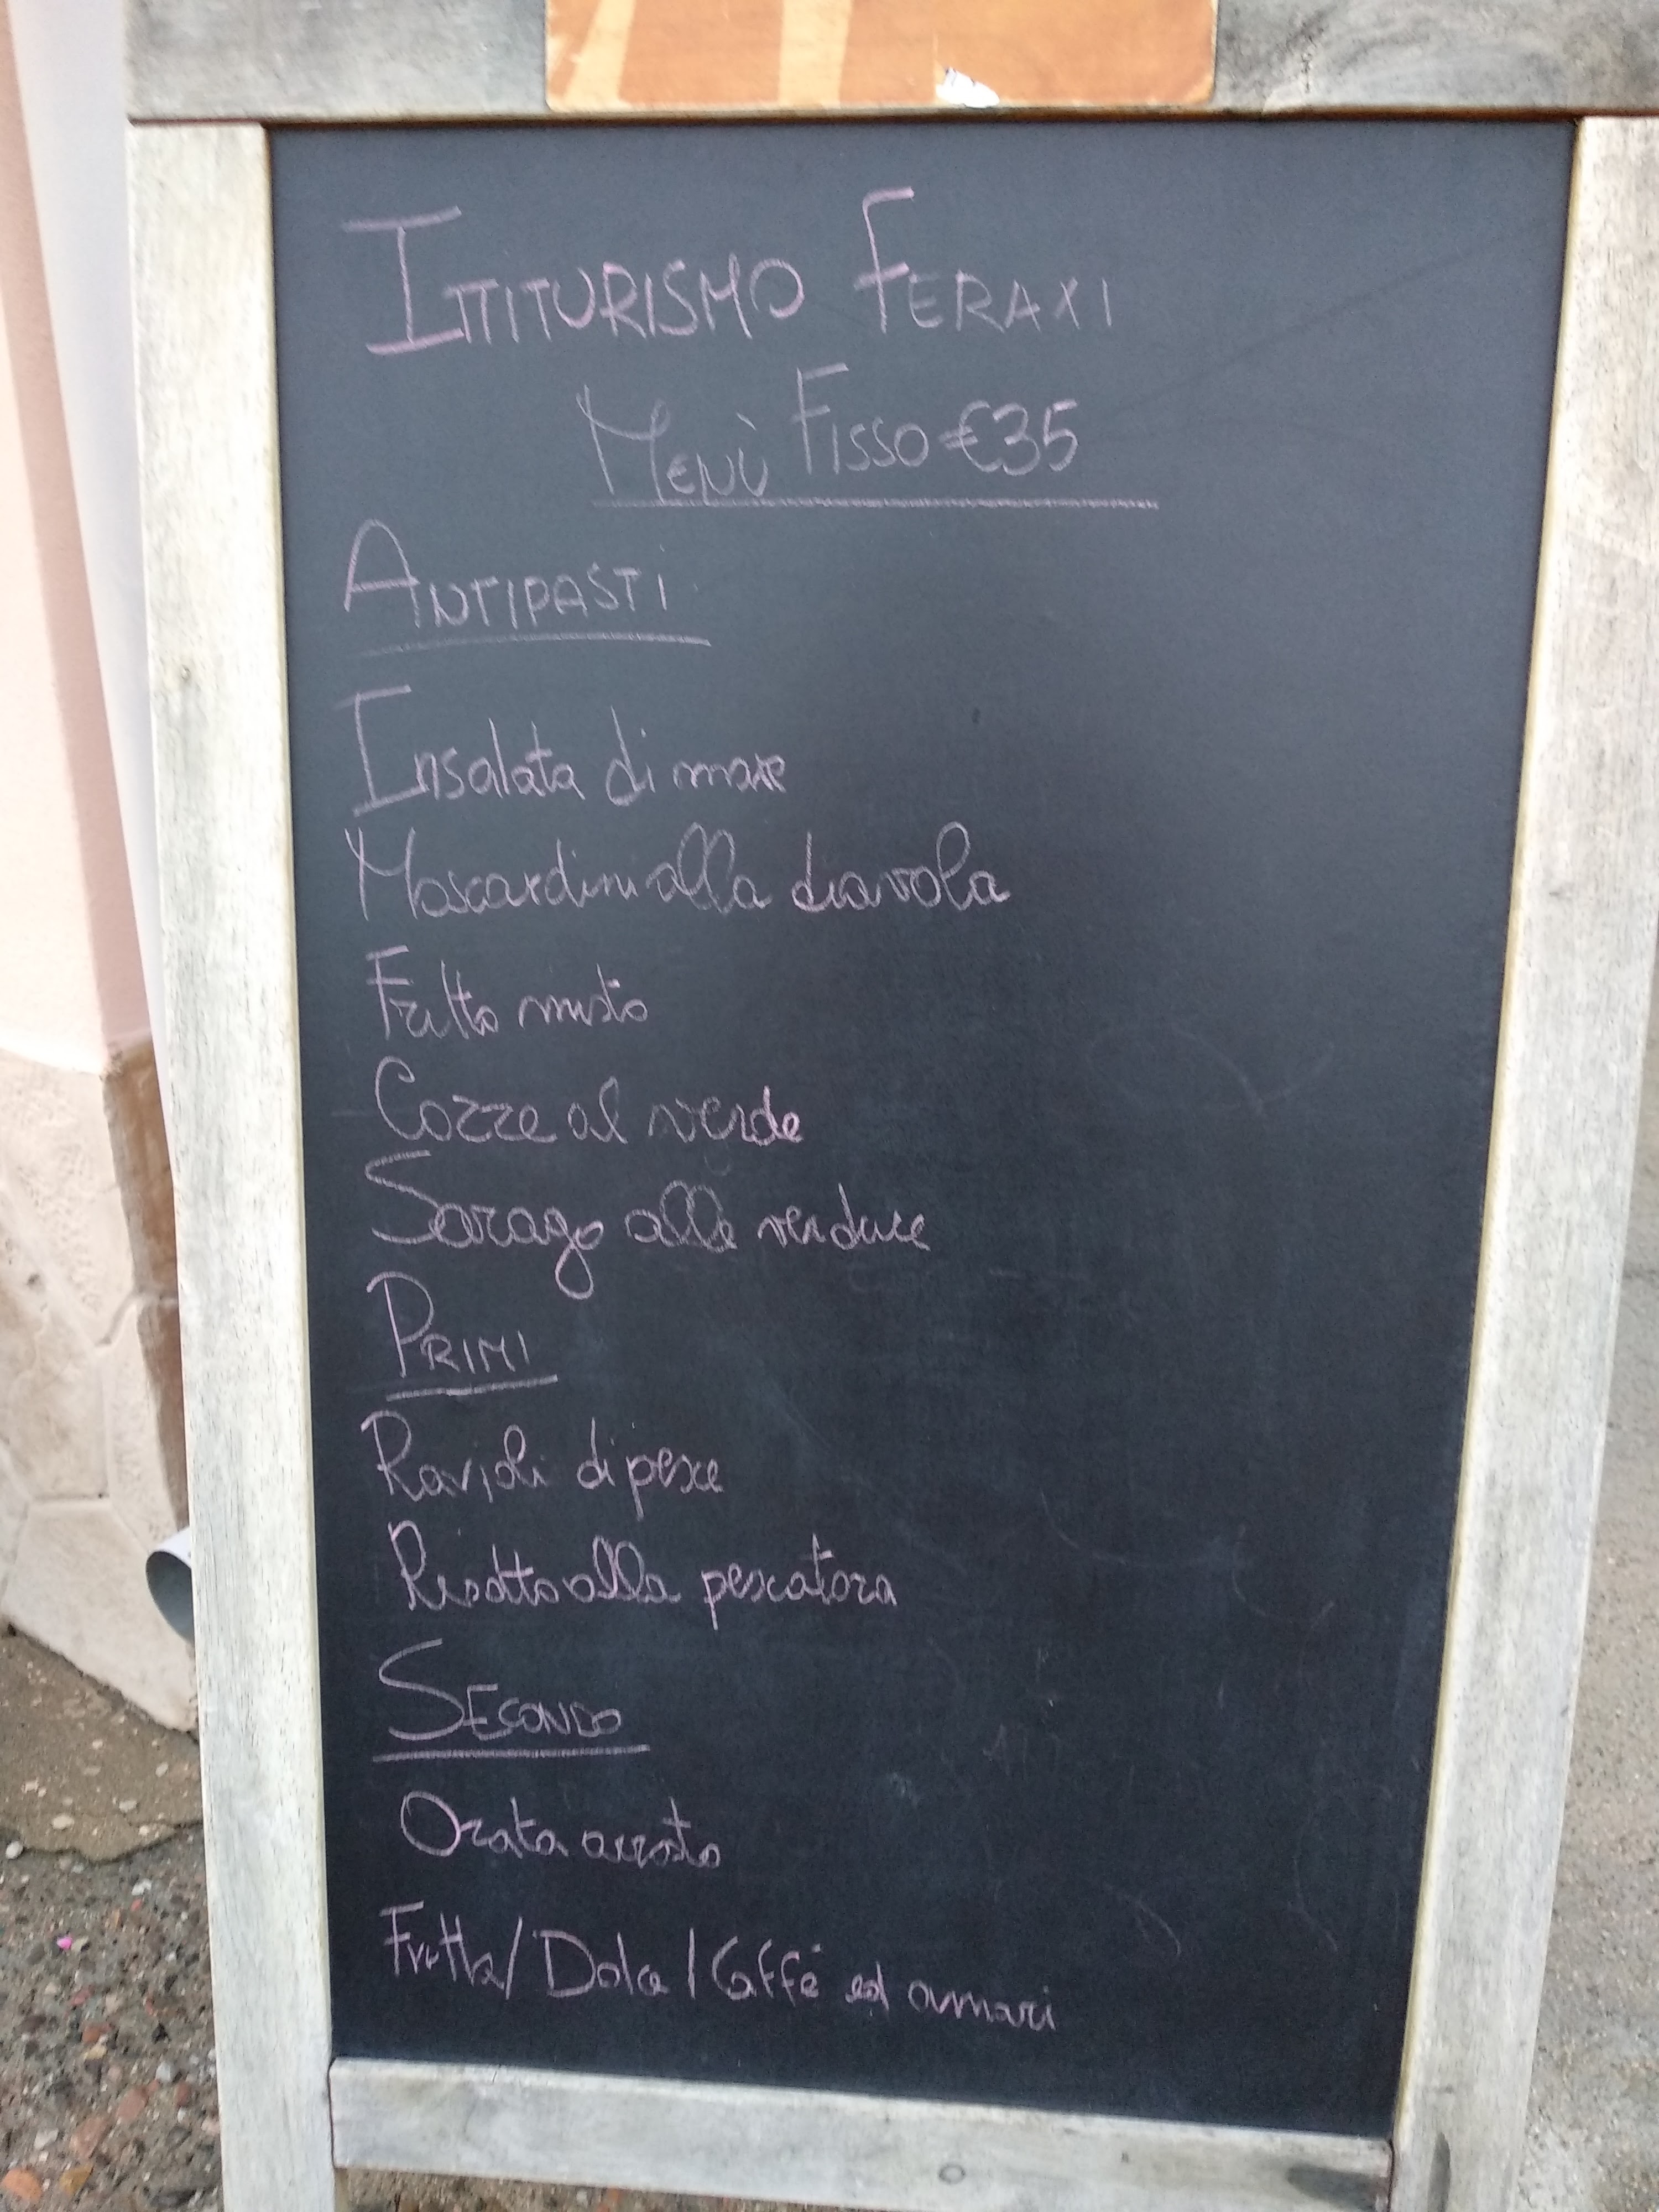 ITTITURISMO FERAXI
MENÙ FISSO €35
ANTIPASTI
Insalata di mare
Moscardini alla diavola
Fritto misto
Cozze al verde
Sarago alle verdure
PRIMI
Ravioli di pesce
Risotto alla pescatora
SECONDO
Orata arrosto
Frutta/Dolce/Caffé ed amari